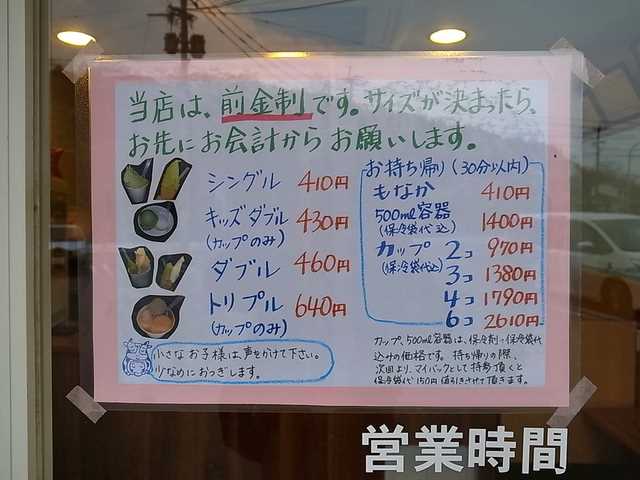 当店は、前金制です。サイズが決まったら、
お先にお会計からお願いします。
シングル 410円
キッズダブル 430円
(カップのみ)
ダブル 460円
トリプル 640円
(カップのみ)
小さなお子様は、声をかけて下さい。
少なめにおつぎします。
お持ち帰り(30分以内)
もなか 410円
500ml容器 1400円
(保冷袋代込)
カップ 2コ 970円
(保冷袋代込) 3コ 1380円
4コ 1790円
6コ 2610円
カップ、500ml容器は、保冷剤・保冷袋代
込みの価格です。持ち帰りの際、
次回より、マイバックとして持参頂くと
保冷袋代150円値引きさせて頂きます。
営業時間